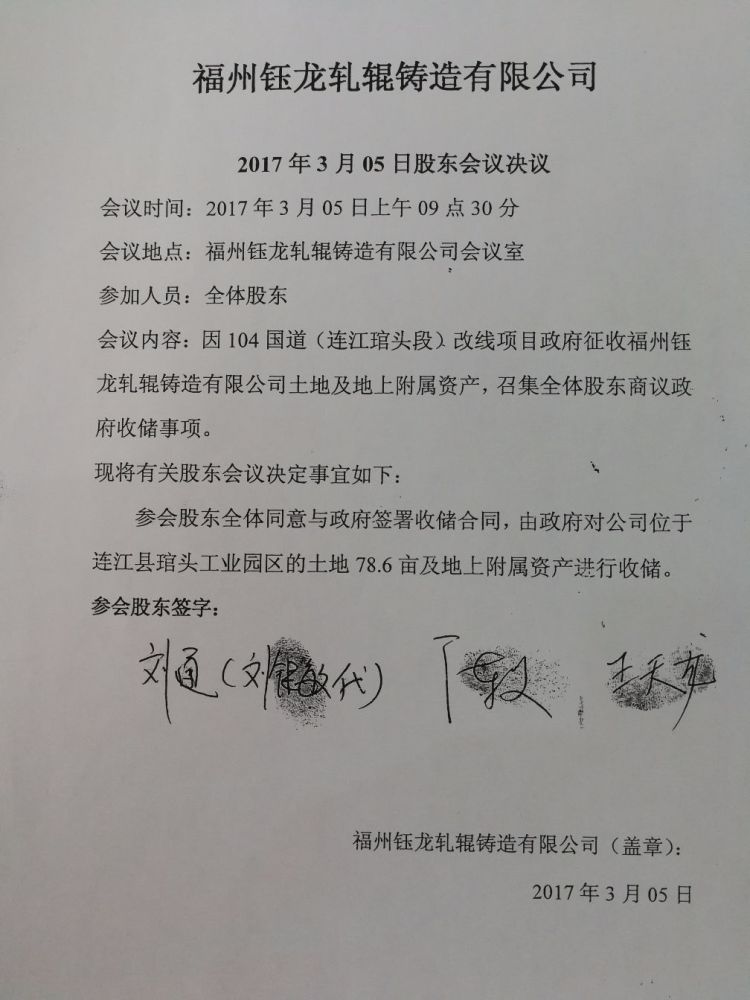 福州钰龙轧辊铸造有限公司
2017 年 3 月 05 日股东会议决议
会议时间：2017 年 3 月 05 日上午 09 点 30 分
会议地点：福州钰龙轧辊铸造有限公司会议室
参加人员：全体股东
会议内容：因 104 国道（连江琯头段）改线项目政府征收福州钰
龙轧辊铸造有限公司土地及地上附属资产，召集全体股东商议政
府收储事项。
现将有关股东会议决定事宜如下：
参会股东全体同意与政府签署收储合同，由政府对公司位于
连江县琯头工业园区的土地 78.6 亩及地上附属资产进行收储。
参会股东签字：
刘通（刘银敏代） 王天龙
福州钰龙轧辊铸造有限公司（盖章）：
2017 年 3 月 05 日